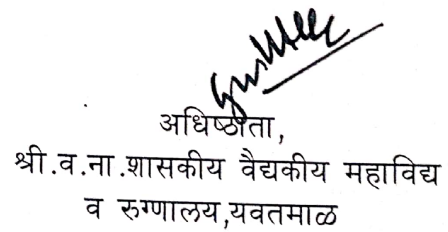 अधिष्ठाता,
श्री.व.ना.शासकीय वैद्यकीय महाविद्य
व रुग्णालय,यवतमाळ